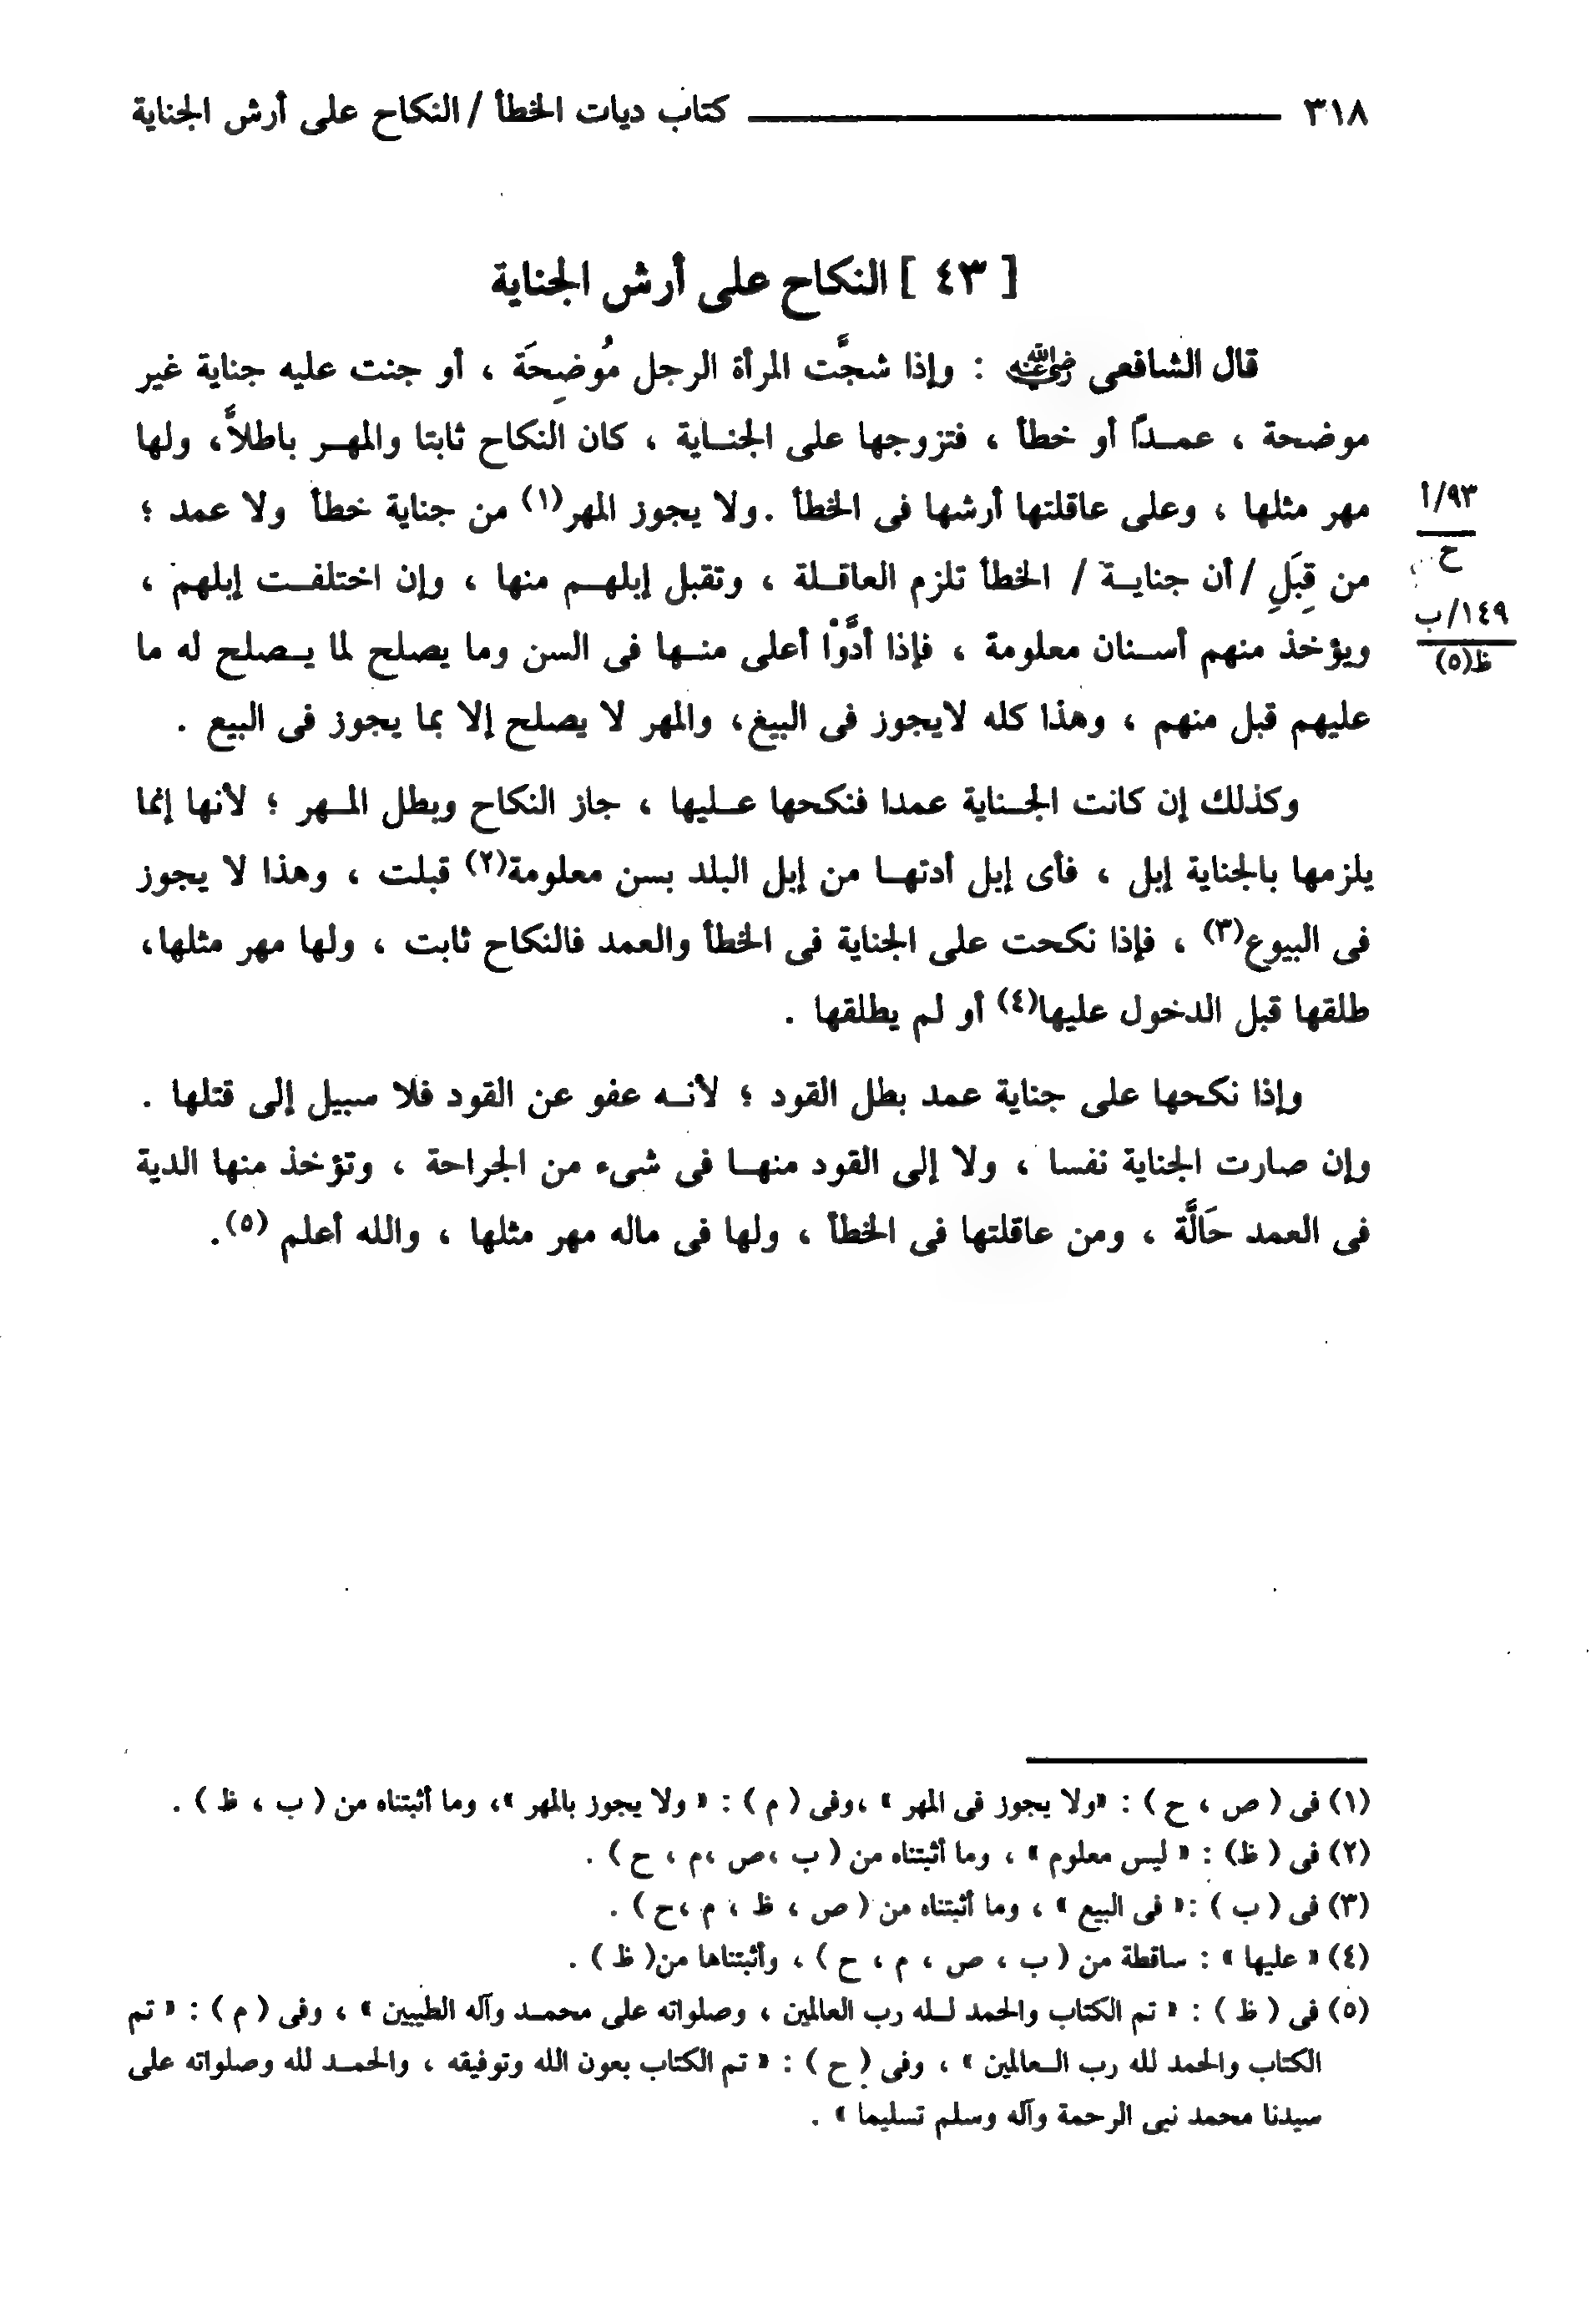 ٣١٨ ــــــــــــــــــــ كتاب ديات الخطأ / النكاح على أرش الجناية
[ ٤٣ ] النكاح على أرش الجناية
قال الشافعى رضي الله عنه : وإذا شجَّت المرأة الرجل مُوضِحَة ، أو جنت عليه جناية غير
موضحة ، عمـدًا أو خطأ ، فتزوجها على الجنـاية ، كان النكاح ثابتا والمهـر باطلاً، ولها
مهر مثلها ، وعلى عاقلتها أرشها فى الخطأ . ولا يجوز المهر(١) من جناية خطأ ولا عمد ؛
٩٣/أ
ح
من قِبَلِ / أن جنايـة / الخطأ تلزم العاقـلة ، وتقبل إبلهـم منها ، وإن اختلفـت إبلهم ،
١٤٩/ب
ظ(٥)
ويؤخذ منهم أسـنان معلومة ، فإذا أدَّوْا أعلى منـها فى السن وما يصلح لما يـصلح له ما
عليهم قبل منهم ، وهذا كله لايجوز فى البيع، والمهر لا يصلح إلا بما يجوز فى البيع .
وكذلك إن كانت الجـناية عمدا فنكحها عـليها ، جاز النكاح وبطل المـهر ؛ لأنها إنما
يلزمها بالجناية إبل ، فأى إبل أدتهـا من إبل البلد بسن معلومة(٢) قبلت ، وهذا لا يجوز
فى البيوع(٣) ، فإذا نكحت على الجناية فى الخطأ والعمد فالنكاح ثابت ، ولها مهر مثلها،
طلقها قبل الدخول عليها(٤) أو لم يطلقها .
وإذا نكحها على جناية عمد بطل القود ؛ لأنـه عفو عن القود فلا سبيل إلى قتلها .
وإن صارت الجناية نفسا ، ولا إلى القود منهـا فى شىء من الجراحة ، وتؤخذ منها الدية
فى العمد حَالَّة ، ومن عاقلتها فى الخطأ ، ولها فى ماله مهر مثلها ، والله أعلم (٥).
(١) فى ( ص ، ح ) : «ولا يجوز فى المهر » ،وفى ( م ) : « ولا يجوز بالمهر »، وما أثبتناه من ( ب ، ظ ) .
(٢) فى ( ظ) : « ليس معلوم » ، وما أثبتناه من ( ب ،ص ،م ، ح ) .
(٣) فى ( ب ) :« فى البيع » ، وما أثبتناه من ( ص ، ظ ، م ،ح ) .
(٤) « عليها » : ساقطة من ( ب ، ص ، م ، ح ) ، وأثبتناها من( ظ ) .
(٥) فى ( ظ ) : « تم الكتاب والحمد لـله رب العالمين ، وصلواته على محمـد وآله الطيبين » ، وفى ( م ) : « تم
الكتاب والحمد لله رب الـعالمين » ، وفى ( ح ) : « تم الكتاب بعون الله وتوفيقه ، والحمـد لله وصلواته على
سيدنا محمد نبى الرحمة وآله وسلم تسليما » .